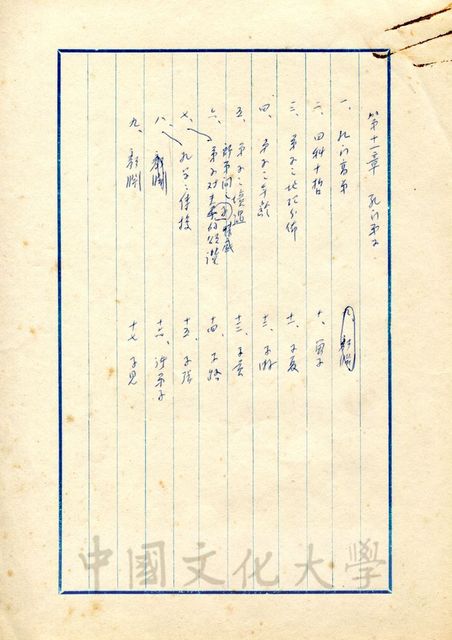 第十一章 孔門弟子
一、孔門高弟
二、四科十哲
三、弟子之地理分佈
四、弟子之年齡
五、弟子之境遇
六、師弟間之情感
七、弟子對于孔子的頌讚
八、孔學之傳授
九、顏淵
十、曾子
十一、子夏
十二、子游
十三、子貢
十四、子路
十五、子張
十六、諸弟子
十七、子思
中國文化大學